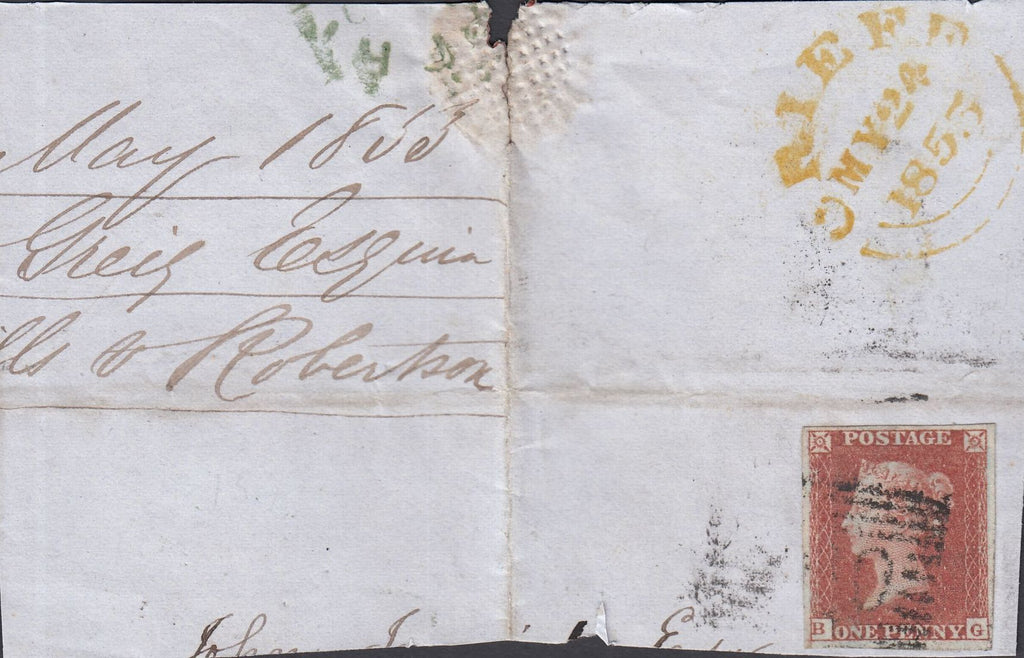 May 1853
Greig Esquire
lls & Robertson
CRIEFF
MY 24
1853
POSTAGE
B ONE PENNY. G
John